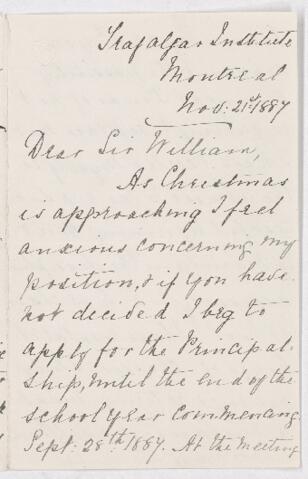 Trafalgar Institute
Montreal
Nov: 21st 1887
Dear Sir William,
As Christmas
is approaching I feel
anxious concerning my
position, & if you have
not decided I beg to
apply for the Principal-
ship, until the end of the
school year commencing
Sept: 28th 1887. At the meeting